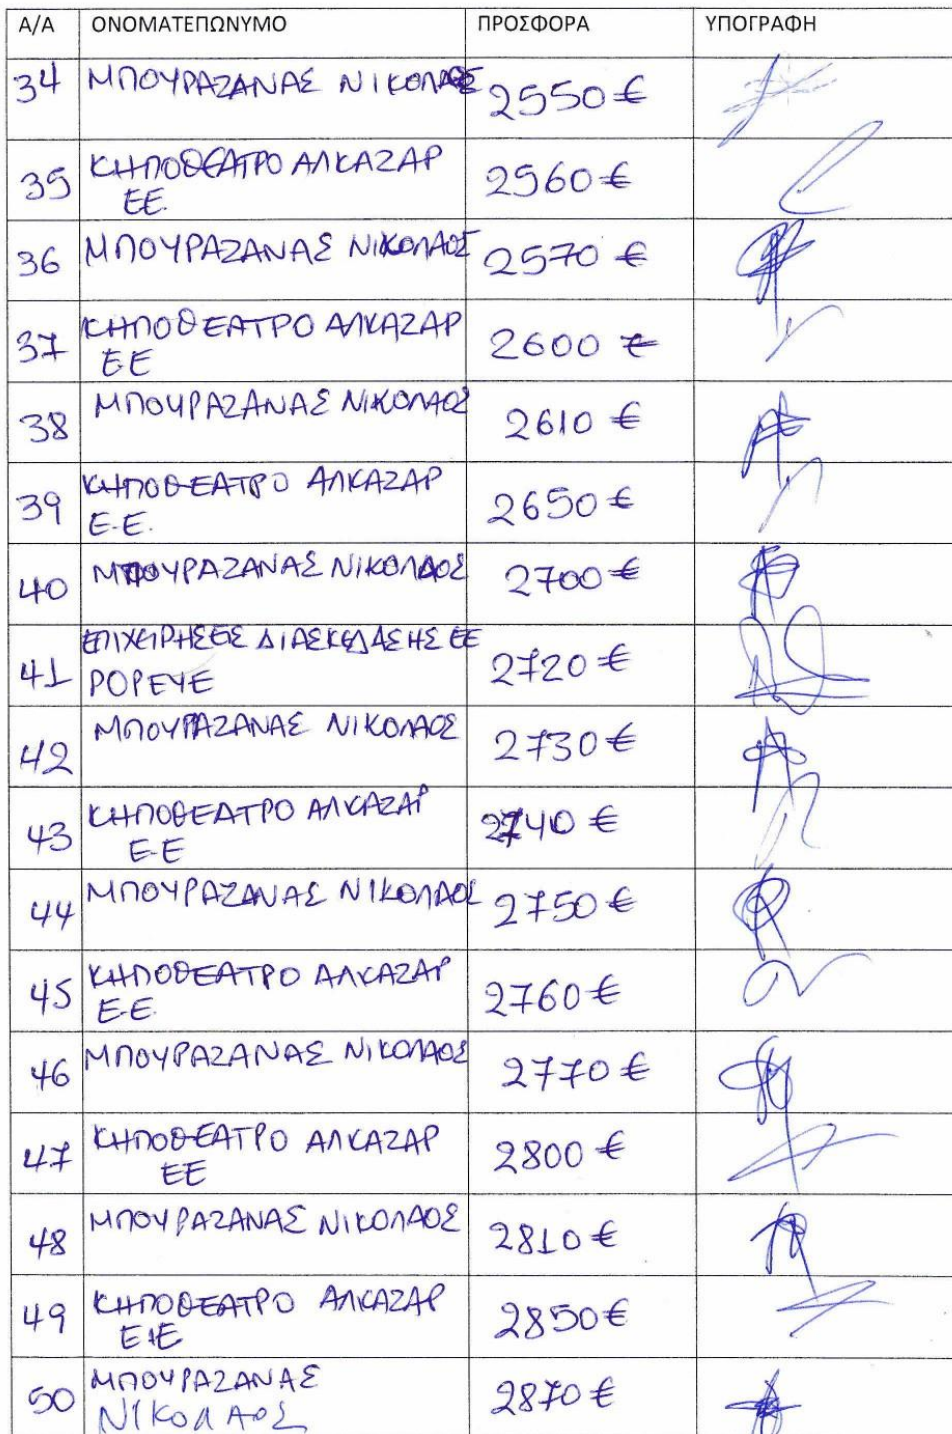 Α/Α ΟΝΟΜΑΤΕΠΩΝΥΜΟ ΠΡΟΣΦΟΡΑ ΥΠΟΓΡΑΦΗ
34 ΜΠΟΥΡΑΖΑΝΑΣ ΝΙΚΟΛΑΟΣ 2550 €
35 ΚΗΠΟΘΕΑΤΡΟ ΑΛΚΑΖΑΡ 2560 €
ΕΕ.
36 ΜΠΟΥΡΑΖΑΝΑΣ ΝΙΚΟΛΑΟΣ 2570 €
37 ΚΗΠΟΘΕΑΤΡΟ ΑΛΚΑΖΑΡ 2600 €
ΕΕ
38 ΜΠΟΥΡΑΖΑΝΑΣ ΝΙΚΟΛΑΟΣ 2610 €
39 ΚΗΠΟΘΕΑΤΡΟ ΑΛΚΑΖΑΡ 2650 €
Ε.Ε.
40 ΜΠΟΥΡΑΖΑΝΑΣ ΝΙΚΟΛΑΟΣ 2700 €
41 ΕΠΙΧΕΙΡΗΣΕΙΣ ΔΙΑΣΚΕΔΑΣΗΣ ΕΕ 2720 €
POPEYE
42 ΜΠΟΥΡΑΖΑΝΑΣ ΝΙΚΟΛΑΟΣ 2730 €
43 ΚΗΠΟΘΕΑΤΡΟ ΑΛΚΑΖΑΡ 2740 €
Ε.Ε
44 ΜΠΟΥΡΑΖΑΝΑΣ ΝΙΚΟΛΑΟΣ 2750 €
45 ΚΗΠΟΘΕΑΤΡΟ ΑΛΚΑΖΑΡ 2760 €
Ε.Ε.
46 ΜΠΟΥΡΑΖΑΝΑΣ ΝΙΚΟΛΑΟΣ 2770 €
47 ΚΗΠΟΘΕΑΤΡΟ ΑΛΚΑΖΑΡ 2800 €
ΕΕ
48 ΜΠΟΥΡΑΖΑΝΑΣ ΝΙΚΟΛΑΟΣ 2810 €
49 ΚΗΠΟΘΕΑΤΡΟ ΑΛΚΑΖΑΡ 2850 €
Ε.Ε
50 ΜΠΟΥΡΑΖΑΝΑΣ 2870 €
ΝΙΚΟΛΑΟΣ